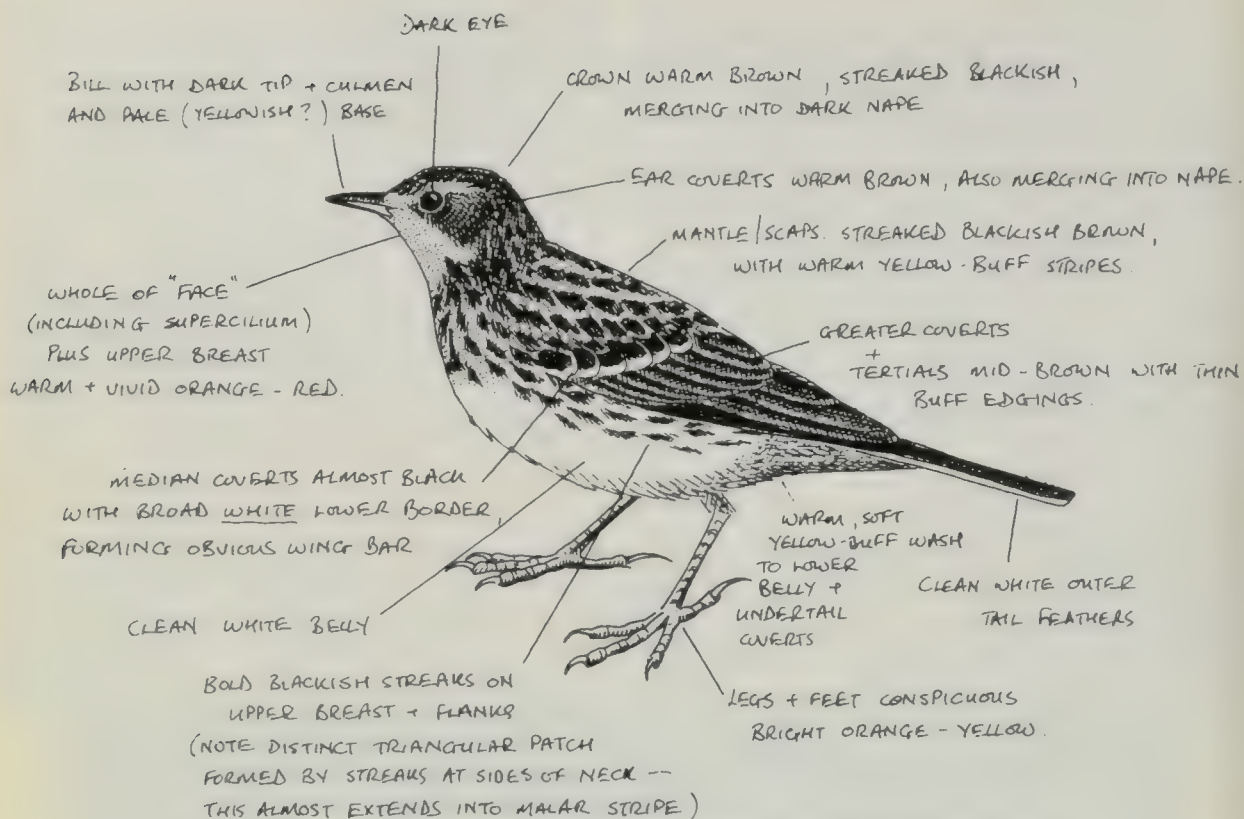 DARK EYE
BILL WITH DARK TIP + CULMEN
AND PALE (YELLOWISH?) BASE
CROWN WARM BROWN, STREAKED BLACKISH,
MERGING INTO DARK NAPE
EAR COVERTS WARM BROWN, ALSO MERGING INTO NAPE.
MANTLE/SCAPS. STREAKED BLACKISH BROWN,
WITH WARM YELLOW-BUFF STRIPES.
WHOLE OF "FACE"
(INCLUDING SUPERCILIUM)
PLUS UPPER BREAST
WARM + VIVID ORANGE-RED.
GREATER COVERTS
+
TERTIALS MID-BROWN WITH THIN
BUFF EDGINGS.
MEDIAN COVERTS ALMOST BLACK
WITH BROAD WHITE LOWER BORDER,
FORMING OBVIOUS WING BAR
WARM, SOFT
YELLOW-BUFF WASH
TO LOWER
BELLY +
UNDERTAIL
COVERTS
CLEAN WHITE OUTER
TAIL FEATHERS
CLEAN WHITE BELLY
BOLD BLACKISH STREAKS ON
UPPER BREAST + FLANKS
(NOTE DISTINCT TRIANGULAR PATCH
FORMED BY STREAKS AT SIDES OF NECK --
THIS ALMOST EXTENDS INTO MALAR STRIPE)
LEGS + FEET CONSPICUOUS
BRIGHT ORANGE-YELLOW.